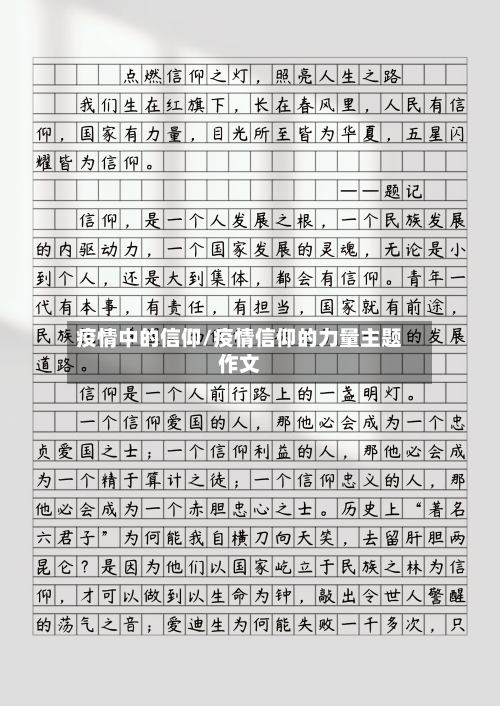 点燃信仰之灯，照亮人生之路
我们生在红旗下，长在春风里，人民有信
仰，国家有力量，目光所至皆为华夏，五星闪
耀皆为信仰。
——题记
信仰，是一个人发展之根，一个民族发展
的内驱动力，一个国家发展的灵魂，无论是小
到个人，还是大到集体，都会有信仰。青年一
代有本事，有责任，有担当，国家就有前途，
民族
的发展
疫情中的信仰/疫情信仰的力量主题
作文
道路。
信仰是一个人前行路上的一盏明灯。
一个信仰爱国的人，那他必会成为一个忠
贞爱国之士；一个信仰利益的人，那他必会成
为一个精于算计之徒；一个信仰忠义的人，那
他必会成为一个赤胆忠心之士。历史上“著名
六君子”为何能我自横刀向天笑，去留肝胆两
昆仑？是因为他们以国家屹立于民族之林为信
仰，才可以做到以生命为钟，敲出令世人警醒
的荡气之音；爱迪生为何能失败一千多次，只